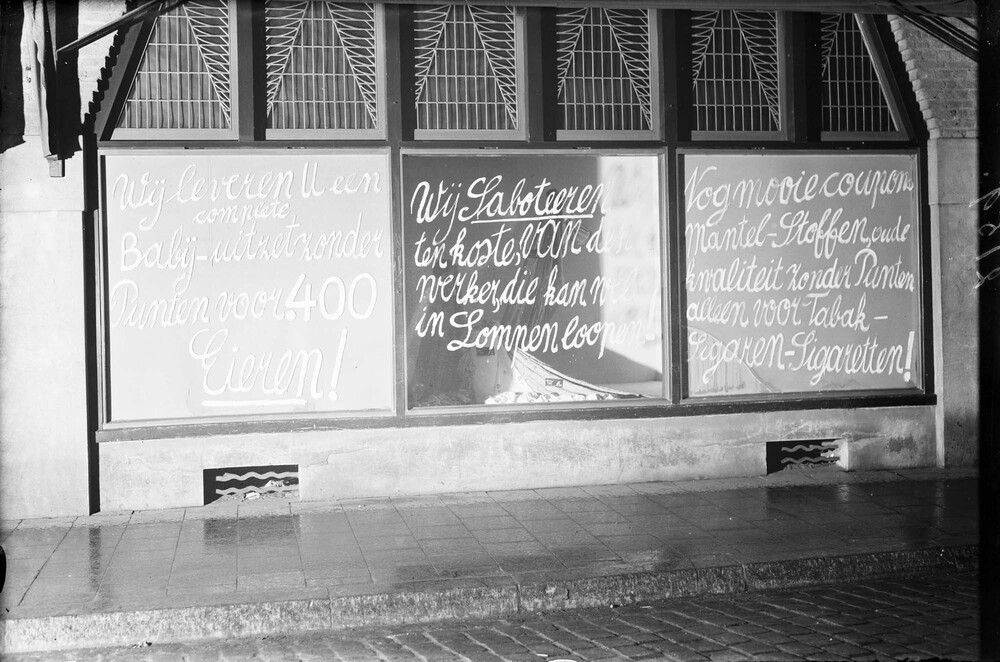 Wij leveren U een
complete
Babij-uitzet zonder
Punten voor 400
Eieren!
Wij Saboteeren
ten koste, VAN den
werker, die kan
in Lompen loopen!
Nog mooie coupons
Mantel-Stoffen, oude
kwaliteit zonder Punten
alleen voor Tabak-
Sigaren-Sigaretten!